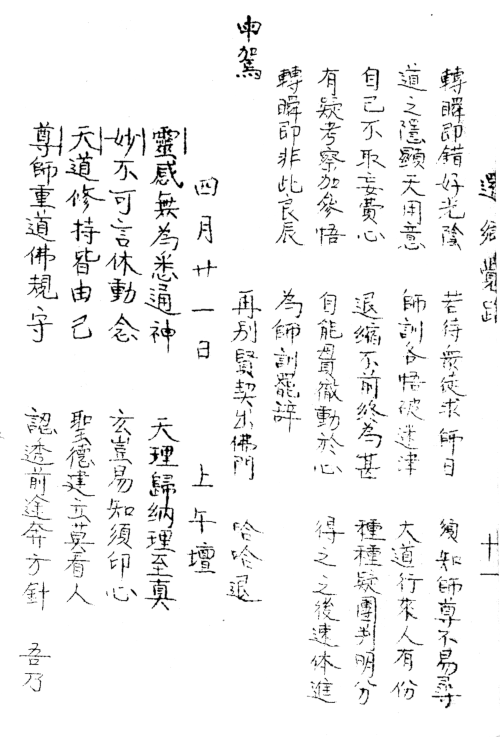 還鄉覺路 廿一
轉瞬即錯好光陰 若待眾徒求師日 須知師尊不易尋
道之隱顯天用意 師訓各悟破迷津 大道行來人有份
自己不取妄費心 退縮不前終為甚 種種疑團判明分
有疑考察加參悟 自能貫徹動於心 得之之後速体進
轉瞬即非此良辰 為師訓罷辞
申駕 再別賢契出佛門 哈哈退
四月廿一日 上午壇
靈感無為悉通神 天理歸納理至真
妙不可言休動念 玄豈易知須印心
天道修持皆由己 聖德建立莫看人
尊師重道佛規守 認透前途奔方針 吾乃